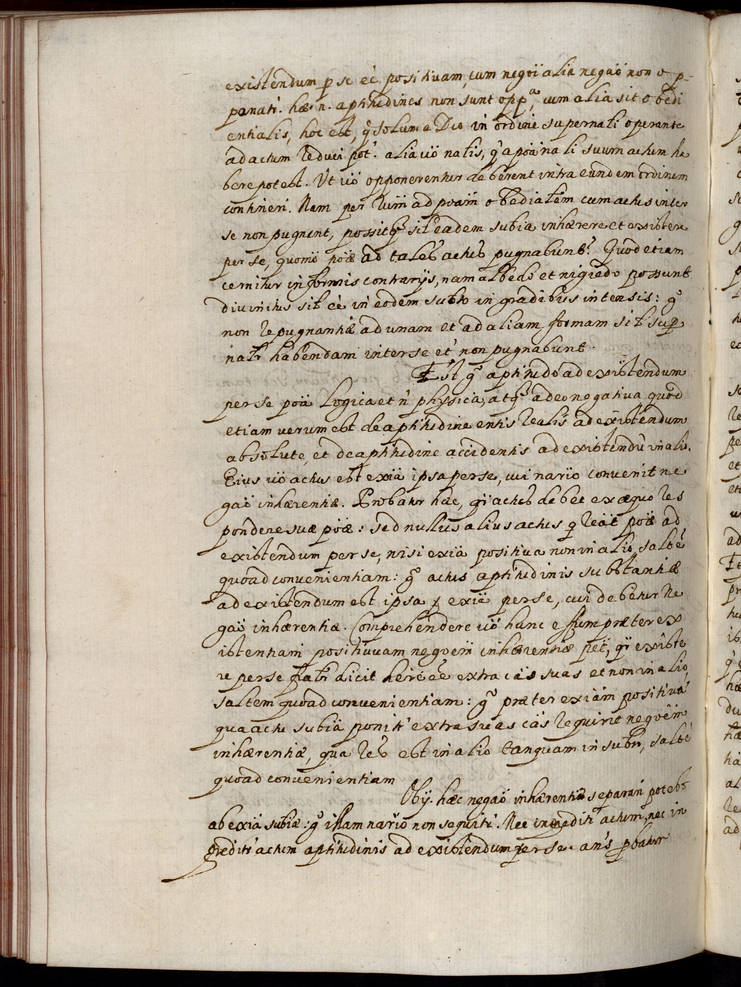 existendum p se eē positivam, cum negōi alia negaō non op-
panati. hæ .n. aptitudines non sunt opp.ᵃ, cum alia sit obedi
entialis, hoc est, q̃ solum a Deo in ordine supernāli operante
ad actum reduci pōt. alia vō nālis, q̃ a poīa nāli suum actum ha
bere potest. Ut vō opponerentur deberent intra eundem ordinem
contineri. Nam per ad poām obediālem cum actus inter
se non pugnent, possitq́ sīl eadem subīa inhærere et existere
per se, quomō poæ ad tales actus pugnabunt? Quod etiam
cernitur in formis contrarijs, nam albedo et nigredo possunt
divinitus sīl eē in eōdem subto in gradibus intensis: g̃
non repugnantiæ ad unam et ad aliam formam sīl sup
nātr habendam inter se et non pugnabunt.
Est g̃ aptitudo ad existendum
per se poā Logica et ñ physica, atq́ adeo negativa quod
etiam verum est de aptitudine entis realis ad existendum
absolute, et de aptitudine accidentis ad existendū in alio.
Eius vō actus est exīa ipsa per se, cui nario convenit ne
gaō inhærentiæ. Probatur hæc, q̃i actus debet ex æquo res
pondere suæ poæ: sed nullus alius actus poæ ad
existendum per se, nisi exīa positiva non in alio, saltē
quoad convenientiam: g̃ actus aptitudinis substantiæ
ad existendum est ipsa exīa per se, cui debetur ne
gaō inhærentiæ. Comprehendere vō hunc præter ex
istentiam positivam negoēm inhærentiæ pēt, q̃i existe
re per se dicit hērē eē extra cās suas et non in alio
saltem quoad convenientiam: g̃ præter exīam positivā
qua actu subīa ponit extra suas cās requirit negoēm
inhærentiæ, qua res est in alio tanquam in subto, saltē
quoad convenientiam
Obij. hæc negaō inhærentiæ separari potest
ab exīa subīæ: g̃ illam nario non sequiti. Nec ingreditr actum, nec in
greditr actum aptitudinis ad existendum per se: ans pbatur